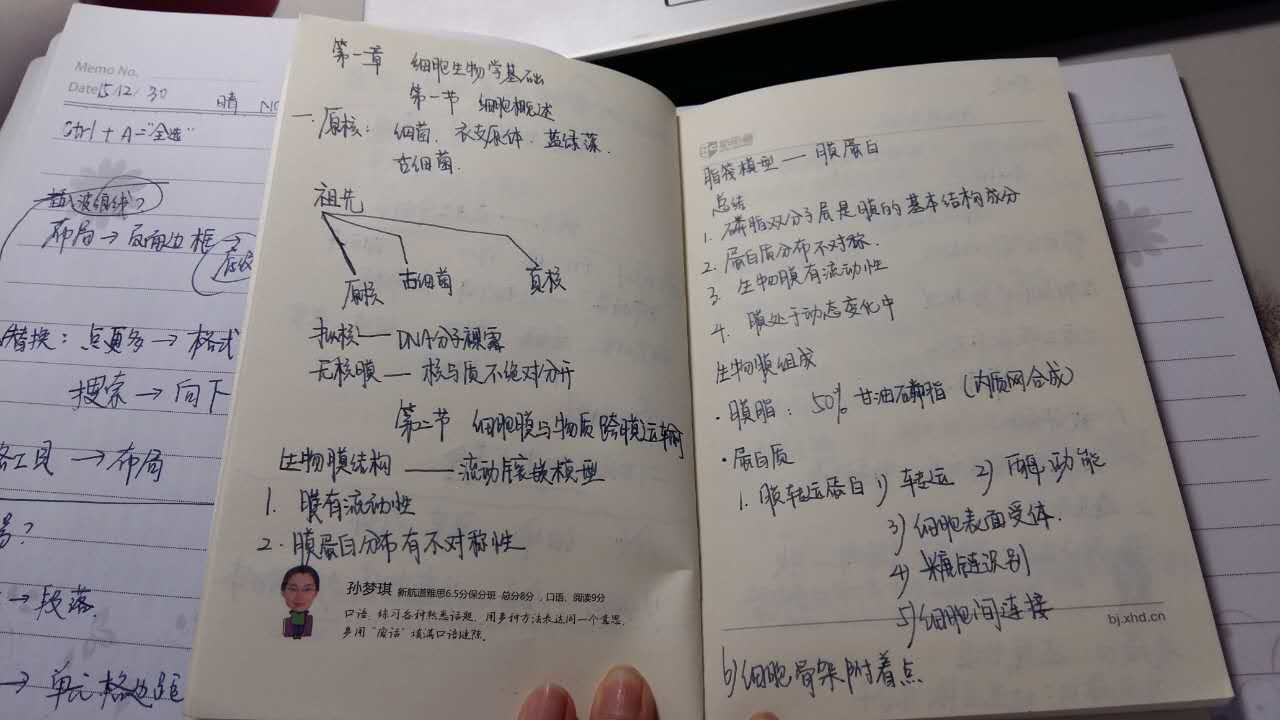 Memo No.
Date 15/12/30
晴
NO
Ctrl + A = "全选"
波浪线
布局 → 页面边框 →
替换: 点更多 → 格式
搜索 → 向下
工具 → 布局
→ 段落
→ 单元格边距
第一章 细胞生物学基础
第一节 细胞概述
一. 原核: 细菌. 衣支原体. 蓝绿藻.
古细菌.
祖先
原核 古细菌 真核
拟核 — DNA分子裸露
无核膜 — 核与质不绝对分开
第二节 细胞膜与物质跨膜运输
生物膜结构 —— 流动镶嵌模型
1. 膜有流动性
2. 膜蛋白分布有不对称性
孙梦琪 新航道雅思6.5分保分班 总分8分,口语、阅读9分
口语:练习各种熟悉话题,用多种方法表达同一个意思,
多用"废话"填满口语缝隙。
脂筏模型 — 膜蛋白
总结
1. 磷脂双分子层是膜的基本结构成分
2. 蛋白质分布不对称.
3. 生物膜有流动性
4. 膜处于动态变化中
生物膜组成
· 膜脂: 50% 甘油磷脂 (内质网合成)
· 蛋白质
1. 膜转运蛋白 1) 转运 2) 酶功能
3) 细胞表面受体.
4) 糖链识别
5) 细胞间连接
bj.xhd.cn
6) 细胞骨架附着点